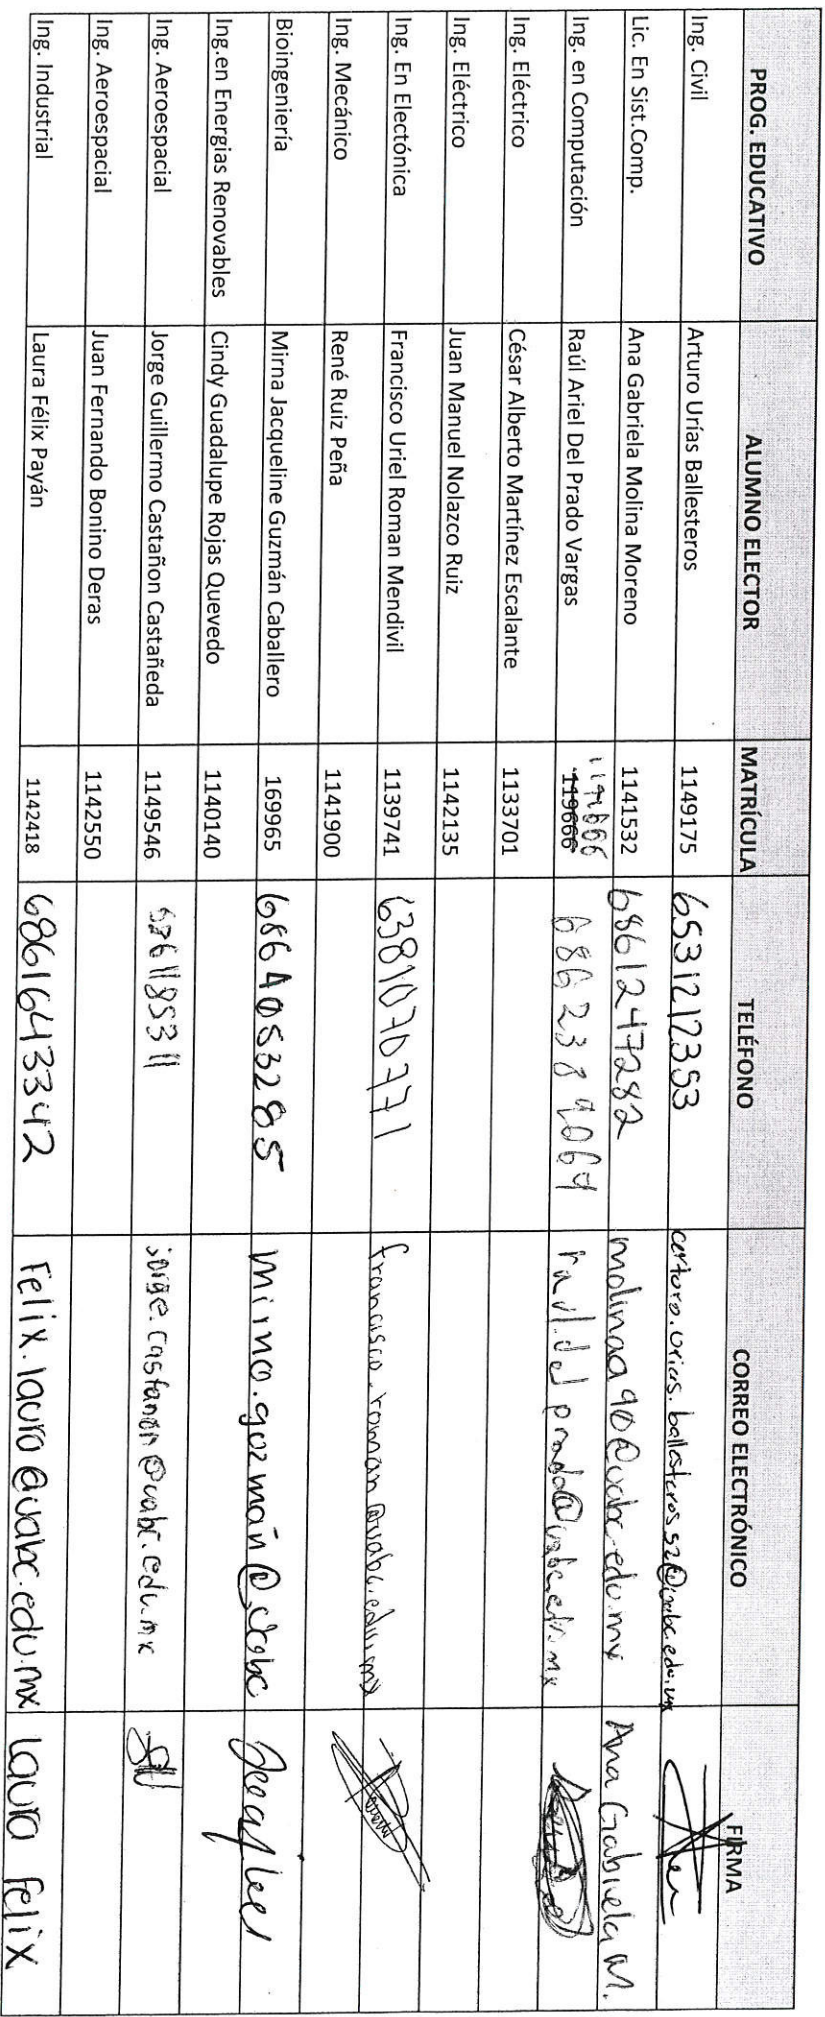 PROG. EDUCATIVO ALUMNO ELECTOR MATRÍCULA TELÉFONO CORREO ELECTRÓNICO FIRMA
Ing. Civil Arturo Urías Ballesteros 1149175 6531212353
Lic. En Sist.Comp. Ana Gabriela Molina Moreno 1141532 6861247282 molinaa90@uabc.edu.mx Ana Gabriela M.
Ing. en Computación Raúl Ariel Del Prado Vargas 119666
Ing. Eléctrico César Alberto Martínez Escalante 1133701
Ing. Eléctrico Juan Manuel Nolazco Ruiz 1142135
Ing. En Electónica Francisco Uriel Roman Mendivil 1139741 francisco.roman@uabc.edu.mx
Ing. Mecánico René Ruiz Peña 1141900
Bioingeniería Mirna Jacqueline Guzmán Caballero 169965 6864053285 mirna.guzman@uabc
Ing.en Energias Renovables Cindy Guadalupe Rojas Quevedo 1140140
Ing. Aeroespacial Jorge Guillermo Castañon Castañeda 1149546 jorge.castanon@uabc.edu.mx
Ing. Aeroespacial Juan Fernando Bonino Deras 1142550
Ing. Industrial Laura Félix Payán 1142418 6861643342 Felix.laura@uabc.edu.mx Laura Felix